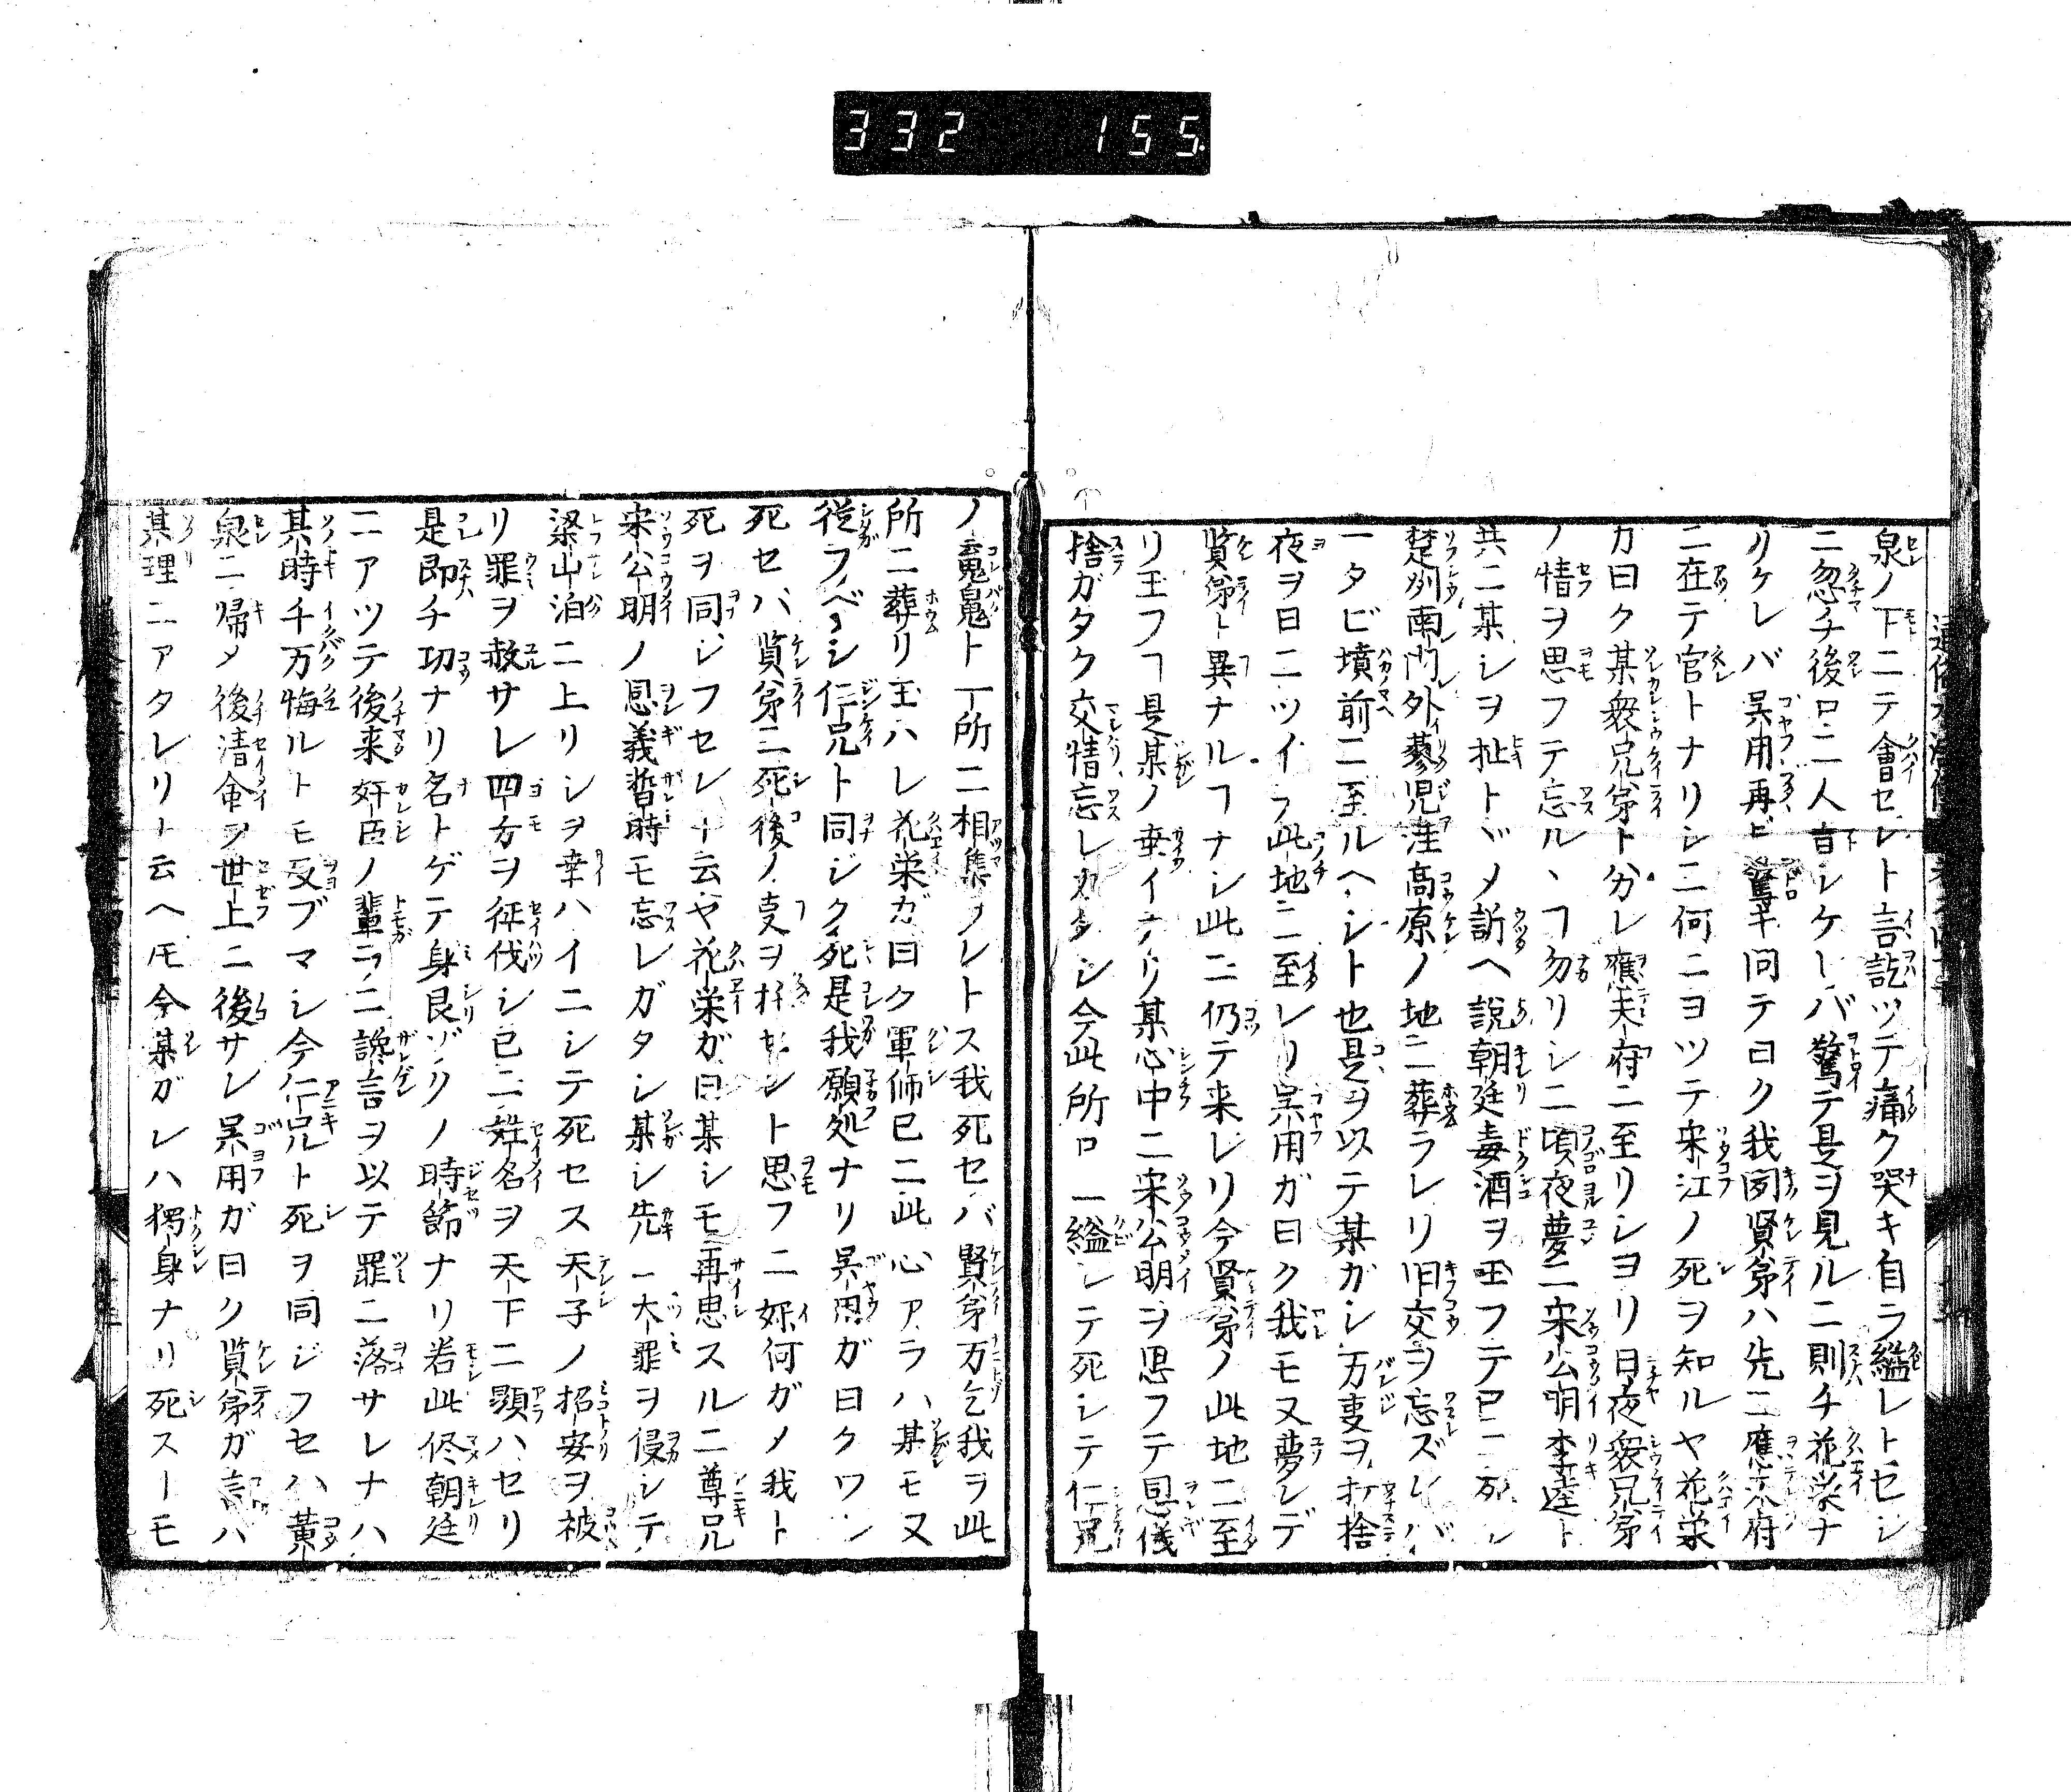 332 155
泉ノ下ニテ會セント言訖ツテ痛ク哭キ自ラ縊レトセシ
ニ忽チ後ロニ人音シケレバ驚テ是ヲ見ルニ則チ花栄ナ
リケレバ呉用再ビ驚キ问テ曰ク我図賢弟ハ先ニ應天府
ニ在テ官トナリシニ何ニヨツテ宋江ノ死ヲ知ルヤ花栄
カ曰ク某衆兄弟ト分レ應天府ニ至リシヨリ日夜衆兄弟
ノ情ヲ思フテ忘ルヽヿ勿リシニ頃夜夢ニ宋公明李逵ト
共ニ某シヲ扯トヾメ訴ヘ説朝廷毒酒ヲ玉フテ已ニ死シ
楚州南門外蓼児洼高原ノ地ニ葬ラレリ旧交ヲ忘ズレバ
一タビ墳前ニ至ルヘシト也是ヲ以テ某ガシ万叓ヲ打捨
夜ヲ日ニツイテ此地ニ至レリ呉用ガ曰ク我モ又夢ンデ
賢弟ト異ナルヿナシ此ニ仍テ来レリ今賢弟ノ此地ニ至
リ玉フヿ是某ノ幸イナリ某心中ニ宋公明ヲ思フテ恩儀
捨ガタク交情忘レカタシ今此所ロニ縊レテ死シテ仁兄
ノ䰟鬼ト一所ニ相集ラントス我死セバ賢弟万乞我ヲ此
所ニ葬リ玉ハレ花栄ガ曰ク軍师已ニ此心アラハ某モ又
從フベシ仁兄ト同ジク死是我願処ナリ呉用ガ曰クワレ
死セバ賢弟ニ死後ノ叓ヲ托セント思フニ如何ガメ我ト
死ヲ同ジフセント云ヤ花栄ガ曰某シモ再思スルニ尊兄
宋公明ノ恩義暫時モ忘レガタシ某シ先ニ大罪ヲ侵シテ
梁山泊ニ上リシヲ幸ハイニシテ死セス天子ノ招安ヲ被
リ罪ヲ赦サレ四方ヲ征伐シ已ニ姓名ヲ天下ニ顕ハセリ
是即チ功ナリ名トゲテ身艮ゾクノ時節ナリ若此侭朝廷
ニアツテ後来奸臣ノ輩ラニ讒言ヲ以テ罪ニ落サレナハ
其時千万悔ルトモ及ブマシ今仁兄ト死ヲ同ジフセハ黄
泉ニ帰メ後清命ヲ世上ニ後サン呉用ガ曰ク賢弟ガ言ハ
其理ニアタレリト云ヘ𪜈今某ガレハ獨身ナリ死スーモ